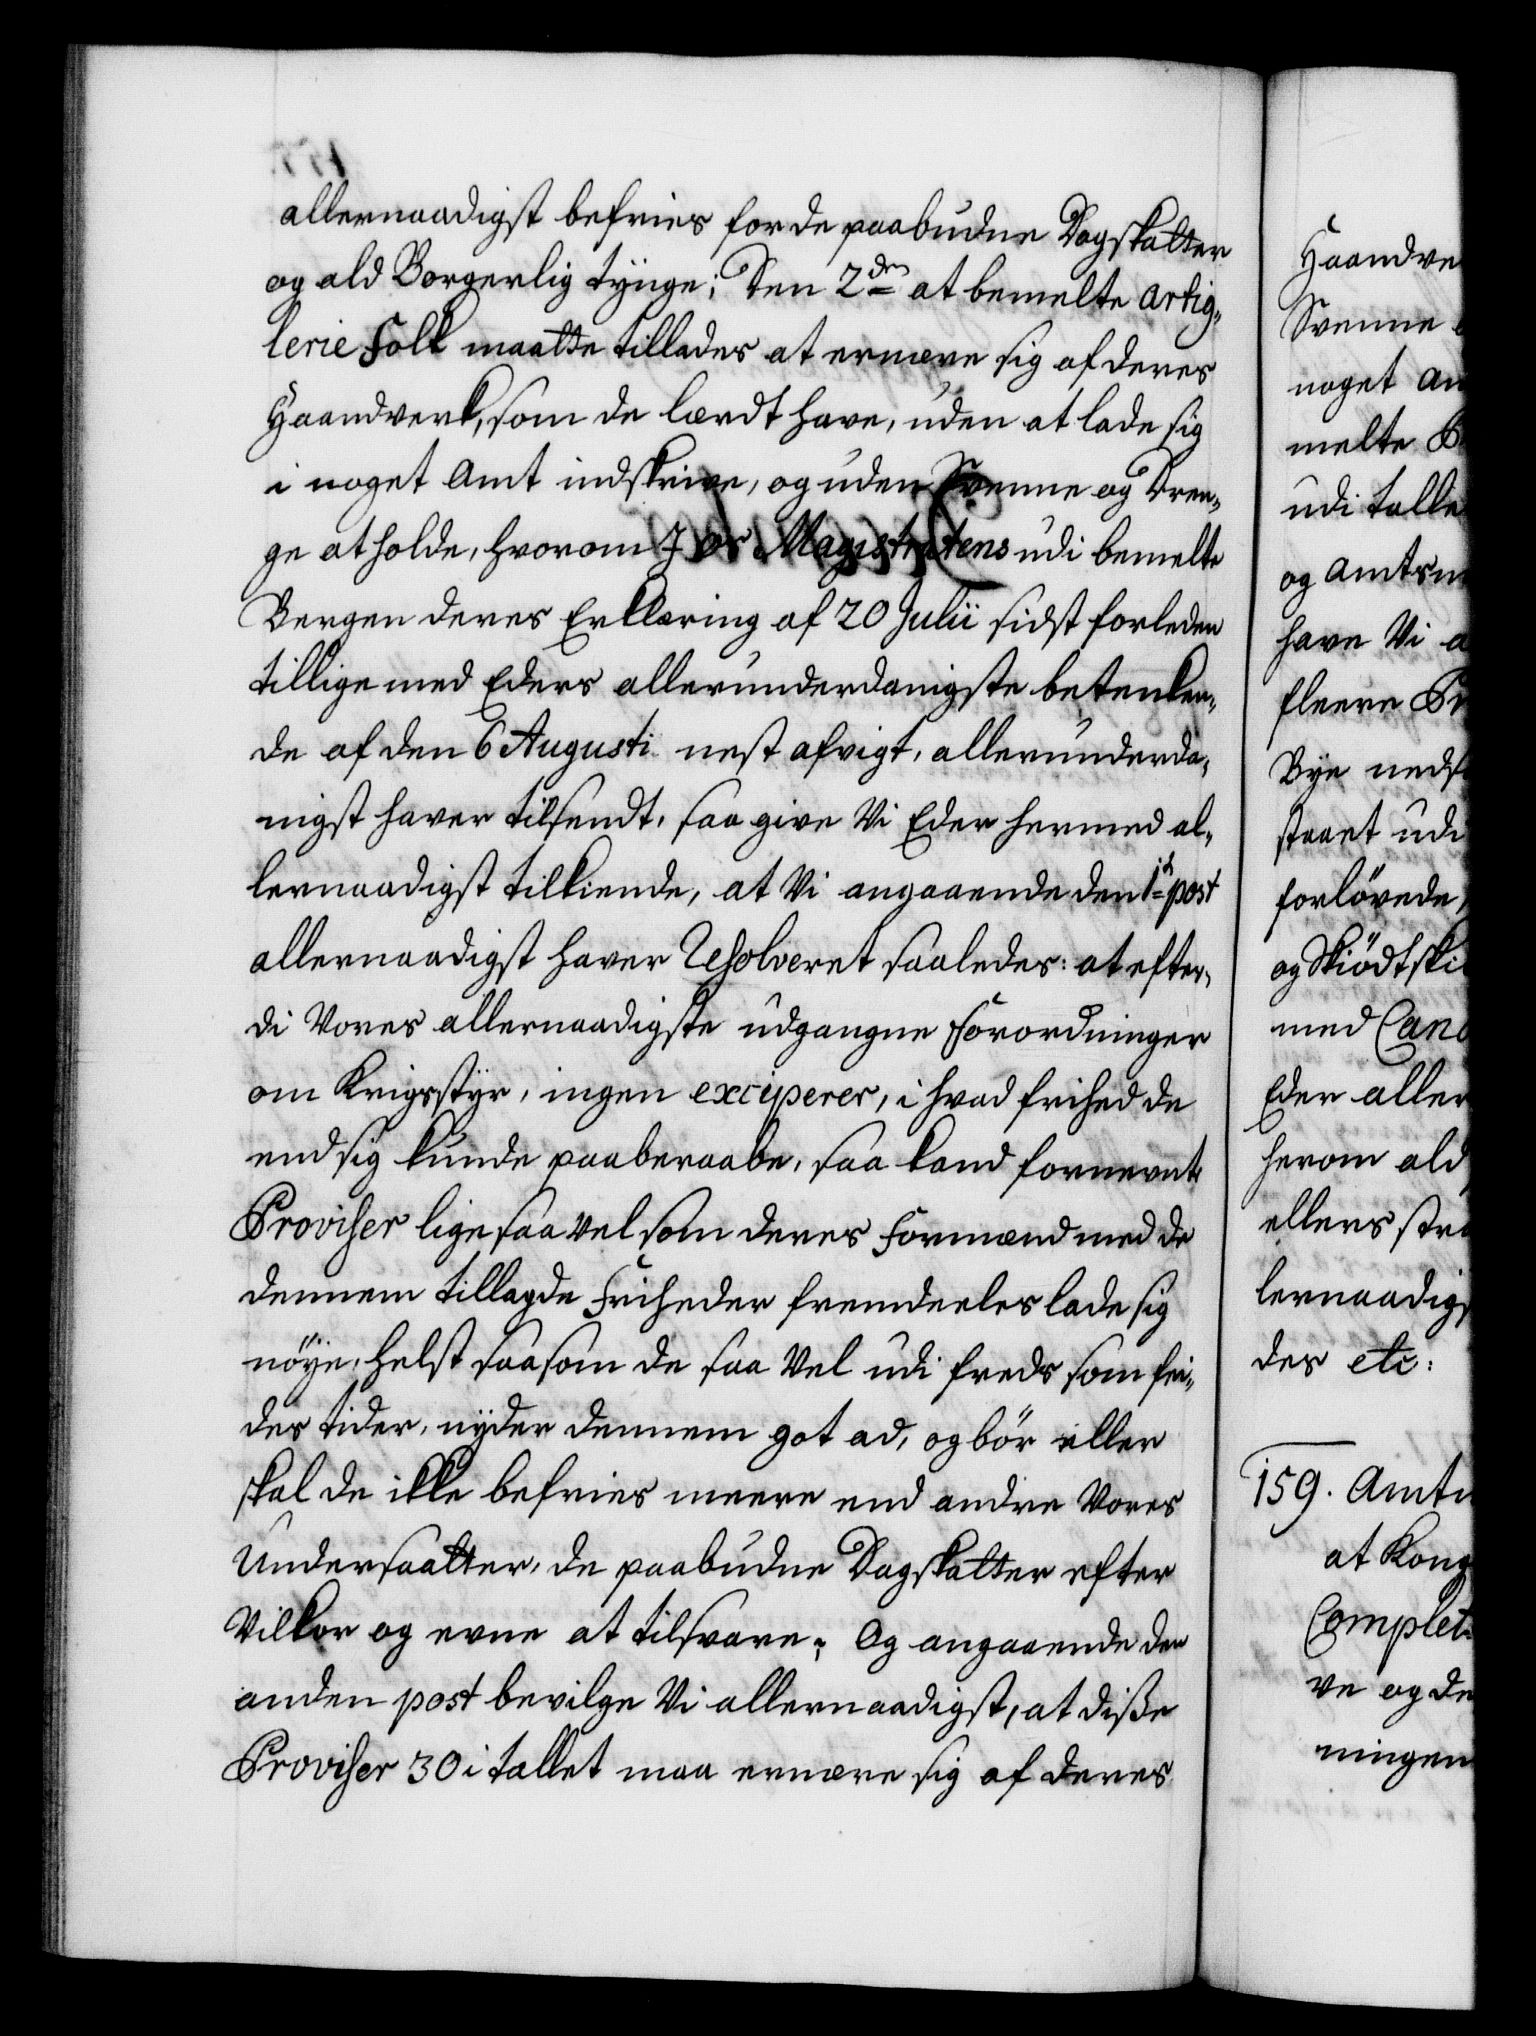 allernaadigst befries for de paabudne Dagskatter
og ald Borgerlig tÿnge; Den 2den at bemelte artig„
lerie Folk maatte tillades at ernære sig af deres
Haandverk, som de lærdt have, uden at lade sig
i noget Amt indskrive, og uden Svenne og Dren„
ge at holde, hvorom I os Magistratens udi bemelte
Bergen deres Erklæring af 20 Julii sidst forleden
tillige med Eders allerunderdanigste betenken„
de af den 6 Augusti nest afvigt, allerunderda„
nigst haver tilsendt, saa give Vi Eder hermed al„
lernaadigst tilkiende, at Vi angaaende den 1ste post
allernaadigst haver Resolveret saaledes: at efter„
di Vores allernaadigste udgangne Forordninger
om Krigsstÿr, ingen exciperer, i hvad frihed de
end sig kunde paaberaabe, saa kand fornevnte
Proviser lige saa vel som deres Formænd med de
dennem tillagde Friheder fremdeeles lade sig
nöÿe, helst saasom de saa Vel udi freds som fei„
des tider, nÿder dennem got ad, og bör eller
skal de ikke befries meere end andre Vores
Undersaatter, de paabudne Dagskatter efter
Vilkor og evne at tilsvare; Og angaaende den
anden post bevilge Vi allernaadigst, at diße
Proviser 30 i tallet maa ernære sig af deres
Haandve
Svenne
noget an
melte
udi talle
og Amts
have Vi a
fleere Pr
Bÿe neds
staaet udi
forlövede,
og Skiödtski
med Canc
Eder aller
herom ald
ellers stra
lernaadigs
des etc:
159. Amt
at Kong
Complet
ve og de
ningen